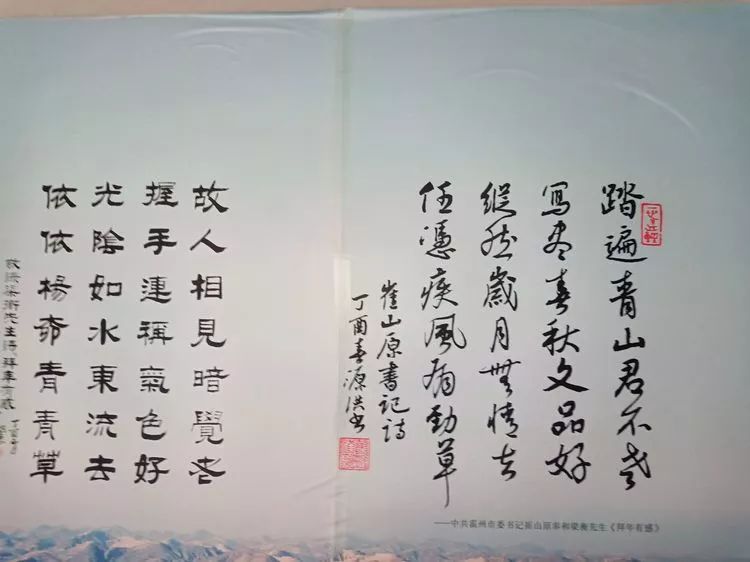 踏遍青山君不老
寫盡春秋文品好
縱然歲月無情去
任憑疾風有勁草
崔山原書記詩
丁酉春源洪书
——中共霍州市委书记崔山原奉和梁衡先生《拜年有感》
故人相見暗覺老
握手連稱氣色好
光陰如水東流去
依依楊柳青青草
敬錄梁衡先生詩拜年有感